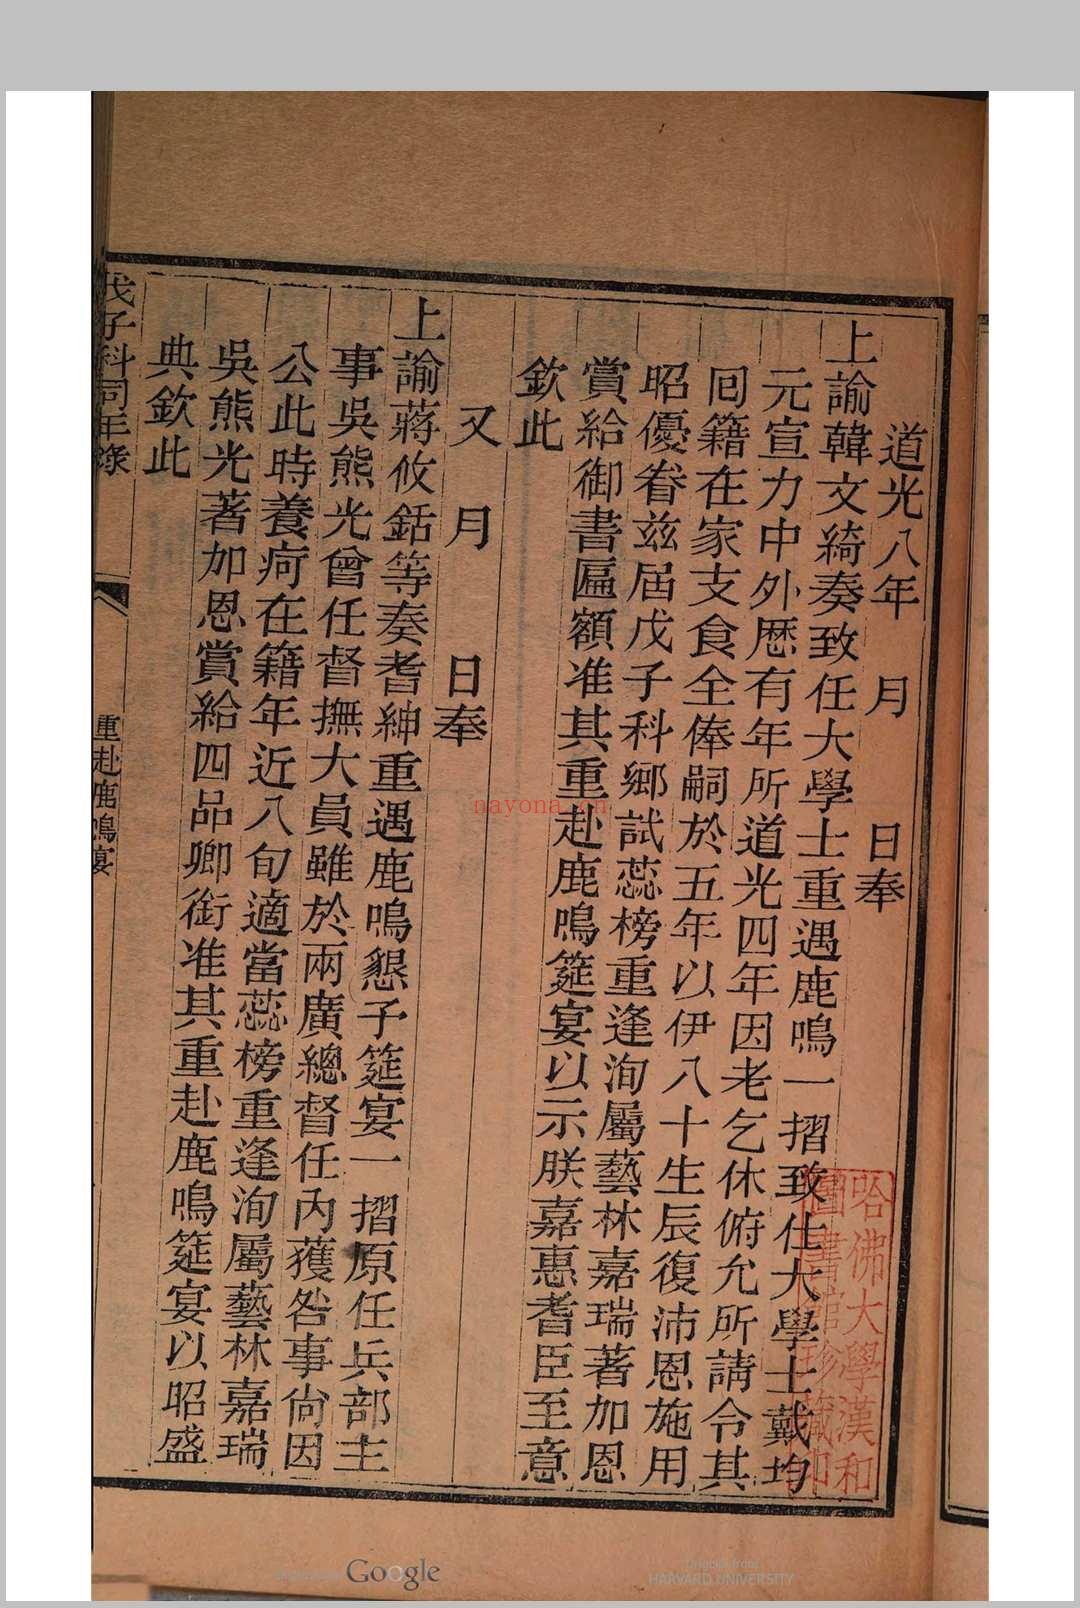 道光八年 月 日奉
上諭韓文綺奏致任大學士重遇鹿鳴一摺致仕大學士戴均
元宣力中外歷有年所道光四年因老乞休俯允所請令其
囘籍在家支食全俸嗣於五年以伊八十生辰復沛恩施用
昭優眷茲屆戊子科鄉試蕊榜重逢洵屬藝林嘉瑞著加恩
賞給御書匾額准其重赴鹿鳴筵宴以示朕嘉惠耆臣至意
欽此
又 月 日奉
上諭蔣攸銛等奏耆紳重遇鹿鳴懇予筵宴一摺原任兵部主
事吳熊光曾任督撫大員雖於兩廣總督任內獲咎事尙因
公此時養疴在籍年近八旬適當蕊榜重逢洵屬藝林嘉瑞
吳熊光著加恩賞給四品卿銜准其重赴鹿鳴筵宴以昭盛
典欽此
戊子科同年錄
重赴鹿鳴宴
哈佛大學漢和
圖書館珍藏印
nayona.cn
Digitized by Google
Original from
HARVARD UNIVERSITY